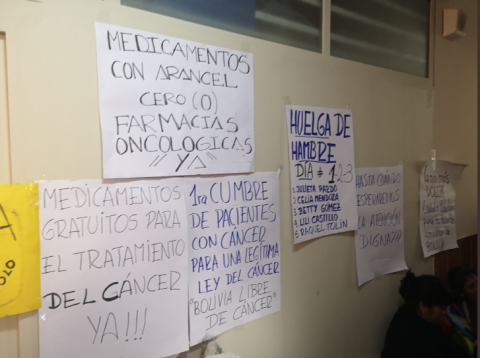 MEDICAMENTOS
CON ARANCEL
CERO (0)
FARMACIAS
ONCOLOGICAS
"YA"
MEDICAMENTOS
GRATUITOS PARA
EL TRATAMIENTO
DEL CÁNCER
YA!!!
1ra CUMBRE
DE PACIENTES
CON CÁNCER
PARA UNA LEGÍTIMA
LEY DEL CÁNCER
"BOLIVIA LIBRE
DE CÁNCER"
HUELGA DE
HAMBRE
DÍA # 1-2-3
1. JULIETA PARDO
2. CELIA MENDOZA
3. BETTY GOMEZ
4. LILI CASTILLO
5. RAQUEL TOLIN
HASTA CUANDO
ESPERAMOS
LA ATENCIÓN
DIGNA